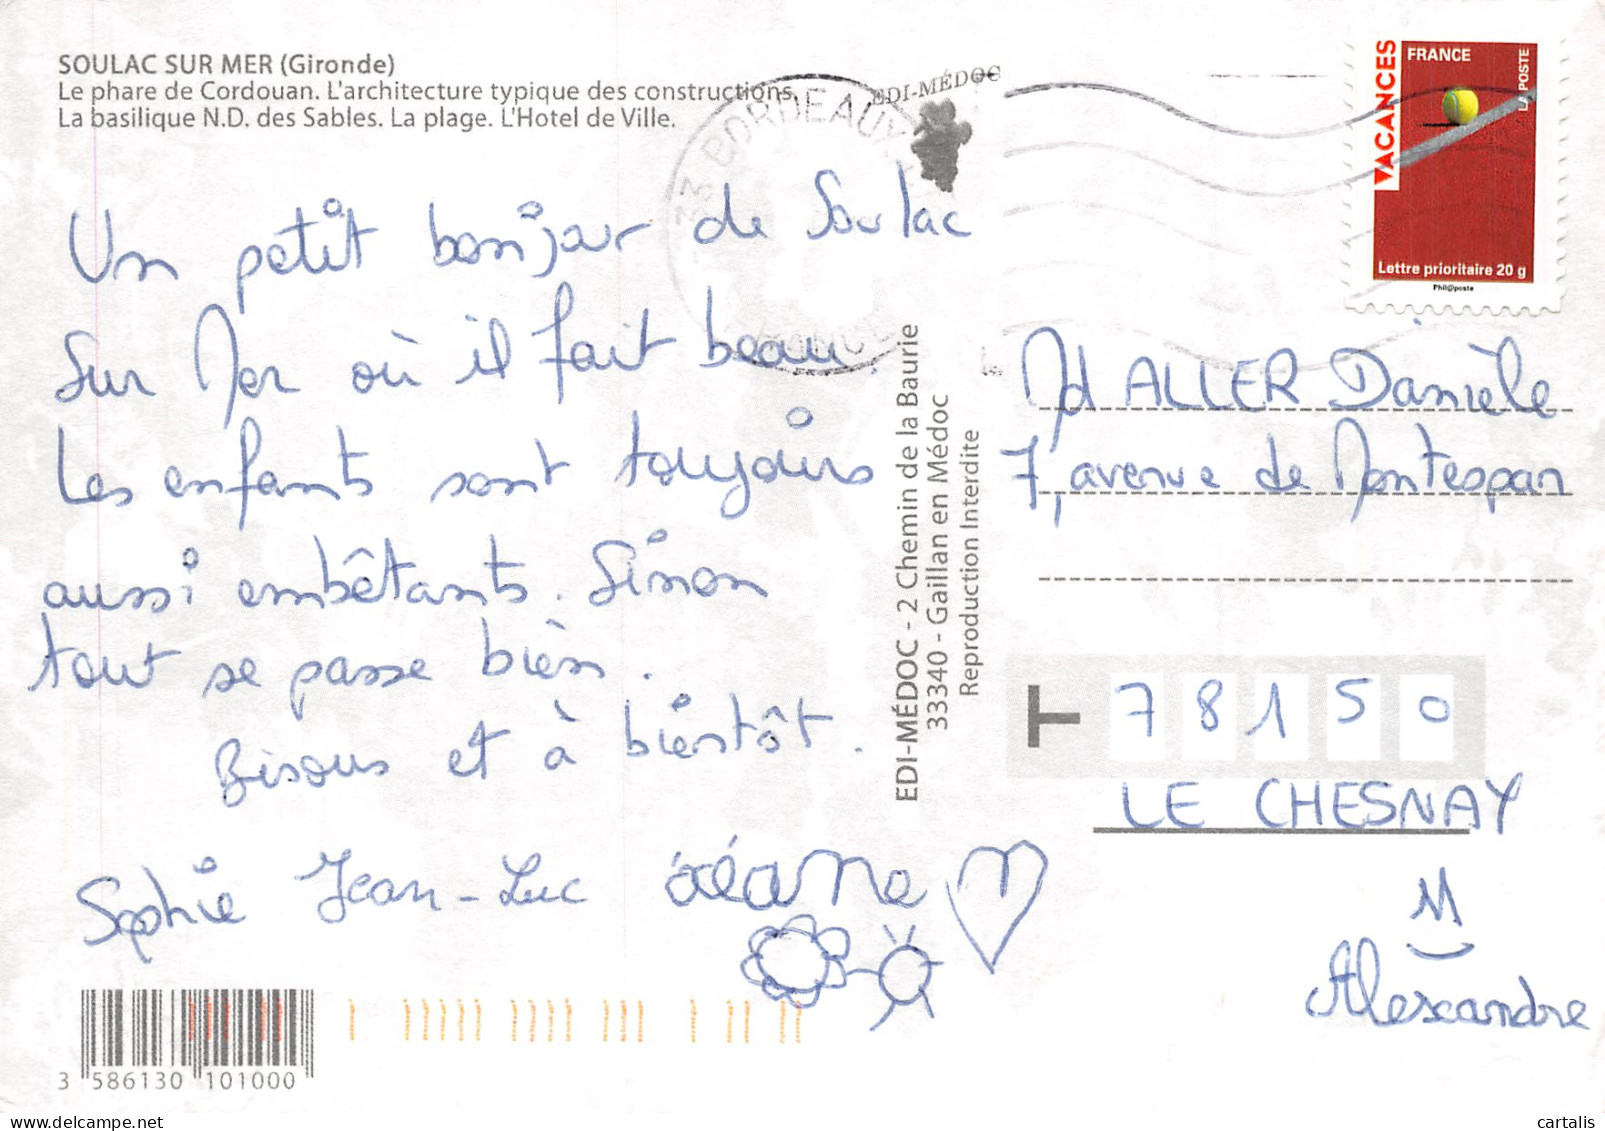 SOULAC SUR MER (Gironde)
Le phare de Cordouan. L'architecture typique des constructions.
La basilique N.D. des Sables. La plage. L'Hotel de Ville.
EDI-MÉDOC
33 BORDEAUX
VACANCES
FRANCE
LA POSTE
Lettre prioritaire 20 g
Phil@poste
Un petit bonjour de Soulac
Sur Mer où il fait beau
Les enfants sont toujours
aussi embêtants. Sinon
tout se passe bien.
Bisous et à bientôt.
Sophie Jean-Luc océane
EDI-MÉDOC - 2 Chemin de la Baurie
33340 - Gaillan en Médoc
Reproduction Interdite
Md ALLER Danièle
7, avenue de Montespan
T 78150
LE CHESNAY
Alexandre
3 586130 101000
cartalis
delcampe.net